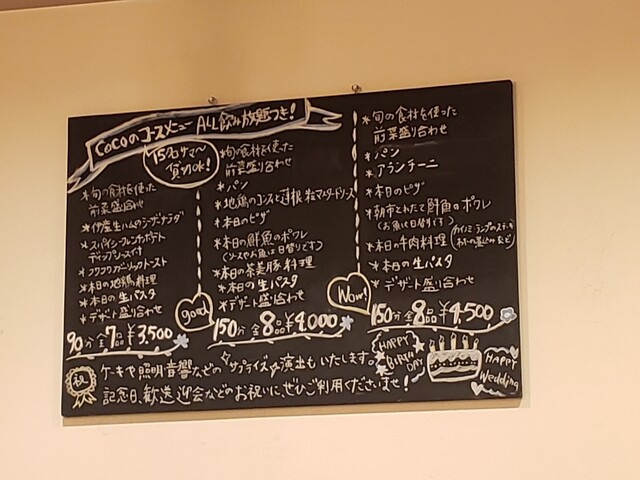 CoCoのコースメニュー ALL飲み放題つき!
15名サマ〜
貸切OK!
*旬の食材を使った
前菜盛り合わせ
*伊産生ハムのシーザーサラダ
*スパイシーフレンチポテト
ディップソース
*フワフワガーリックトースト
*本日の地鶏料理
*本日の生パスタ
*デザート盛り合わせ
90分 全7品 ¥3,500
good
*旬の食材を使った
前菜盛り合わせ
*パン
*地鶏のコンフィと蓮根 粒マスタードソース
*本日のピザ
*本日の鮮魚のポワレ
(ソースやお魚は日替りです)
*本日の茶美豚料理
*本日の生パスタ
*デザート盛り合わせ
150分 全8品 ¥4,000
Wow!
*旬の食材を使った
前菜盛り合わせ
*パン
*アランチーニ
*本日のピザ
*朝市でとれた鮮魚のポワレ
(お魚は日替りです)
*本日の牛肉料理
(カイノミ・ランプのステーキ
ホホの煮込みなど)
*本日の生パスタ
*デザート盛り合わせ
150分 全8品 ¥4,500
祝
ケーキや照明音響などのサプライズ演出もいたします。
記念日、歓送迎会などのお祝いに、ぜひご利用くださいませ!
HAPPY
BIRTH
DAY
HAPPY
Wedding